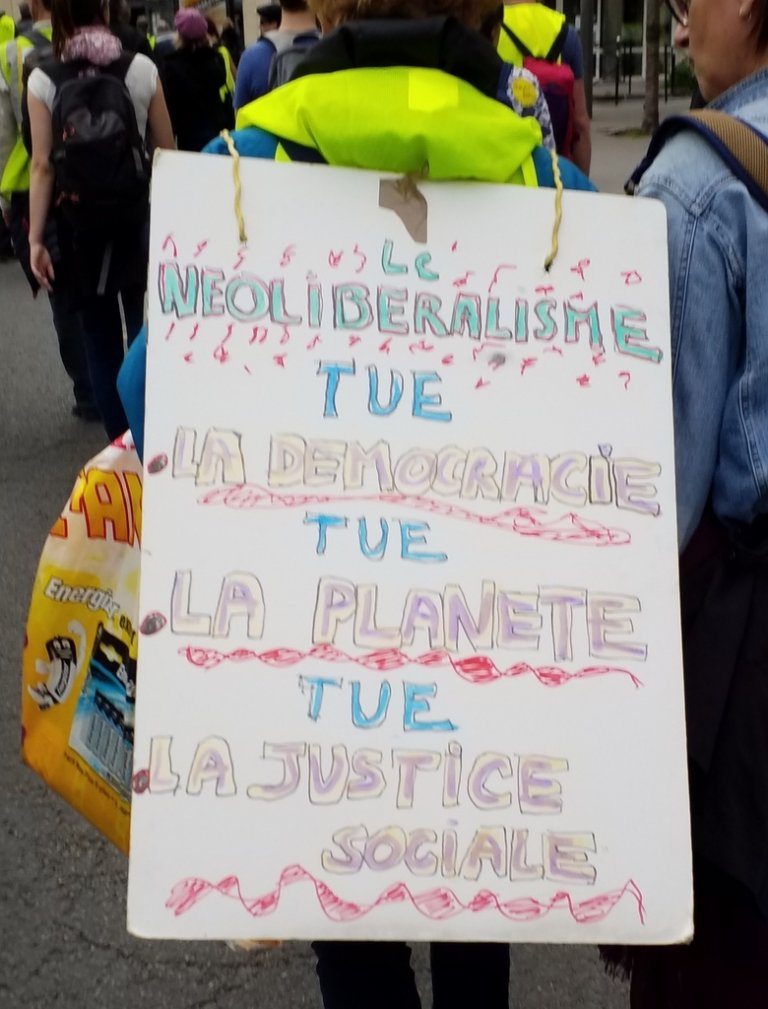 Le
NEOLIBERALISME
TUE
LA DEMOCRACIE
TUE
LA PLANETE
TUE
LA JUSTICE
SOCIALE